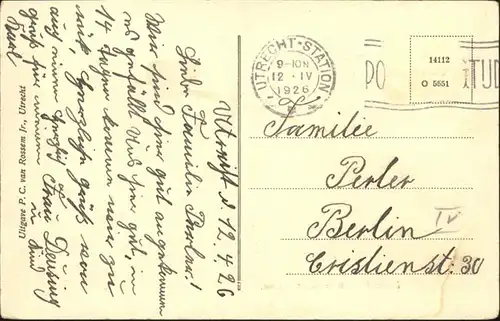 Utrecht d. 12.4.26
Liebe Familie Perler!
Wir sind hier gut angekommen
es gefällt Uns hier gut, in
14 Tagen kommen wir zu
mit herzlichen Gruß von
auch einen Gruß
Gruß für meinen Frau
Uitgave P. C. van Rossem Jr., Utrecht
UTRECHT-STATION
9-10N
12 . IV
1926
PO
TUD
14112
O 5651
Familie
Perler
Berlin
IV
Cristienst: 30